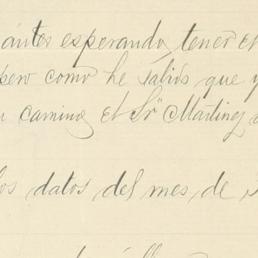 ántos esperando tener e
pero como he sabido que y
camino el Sr Martinez
los datos del mes, de